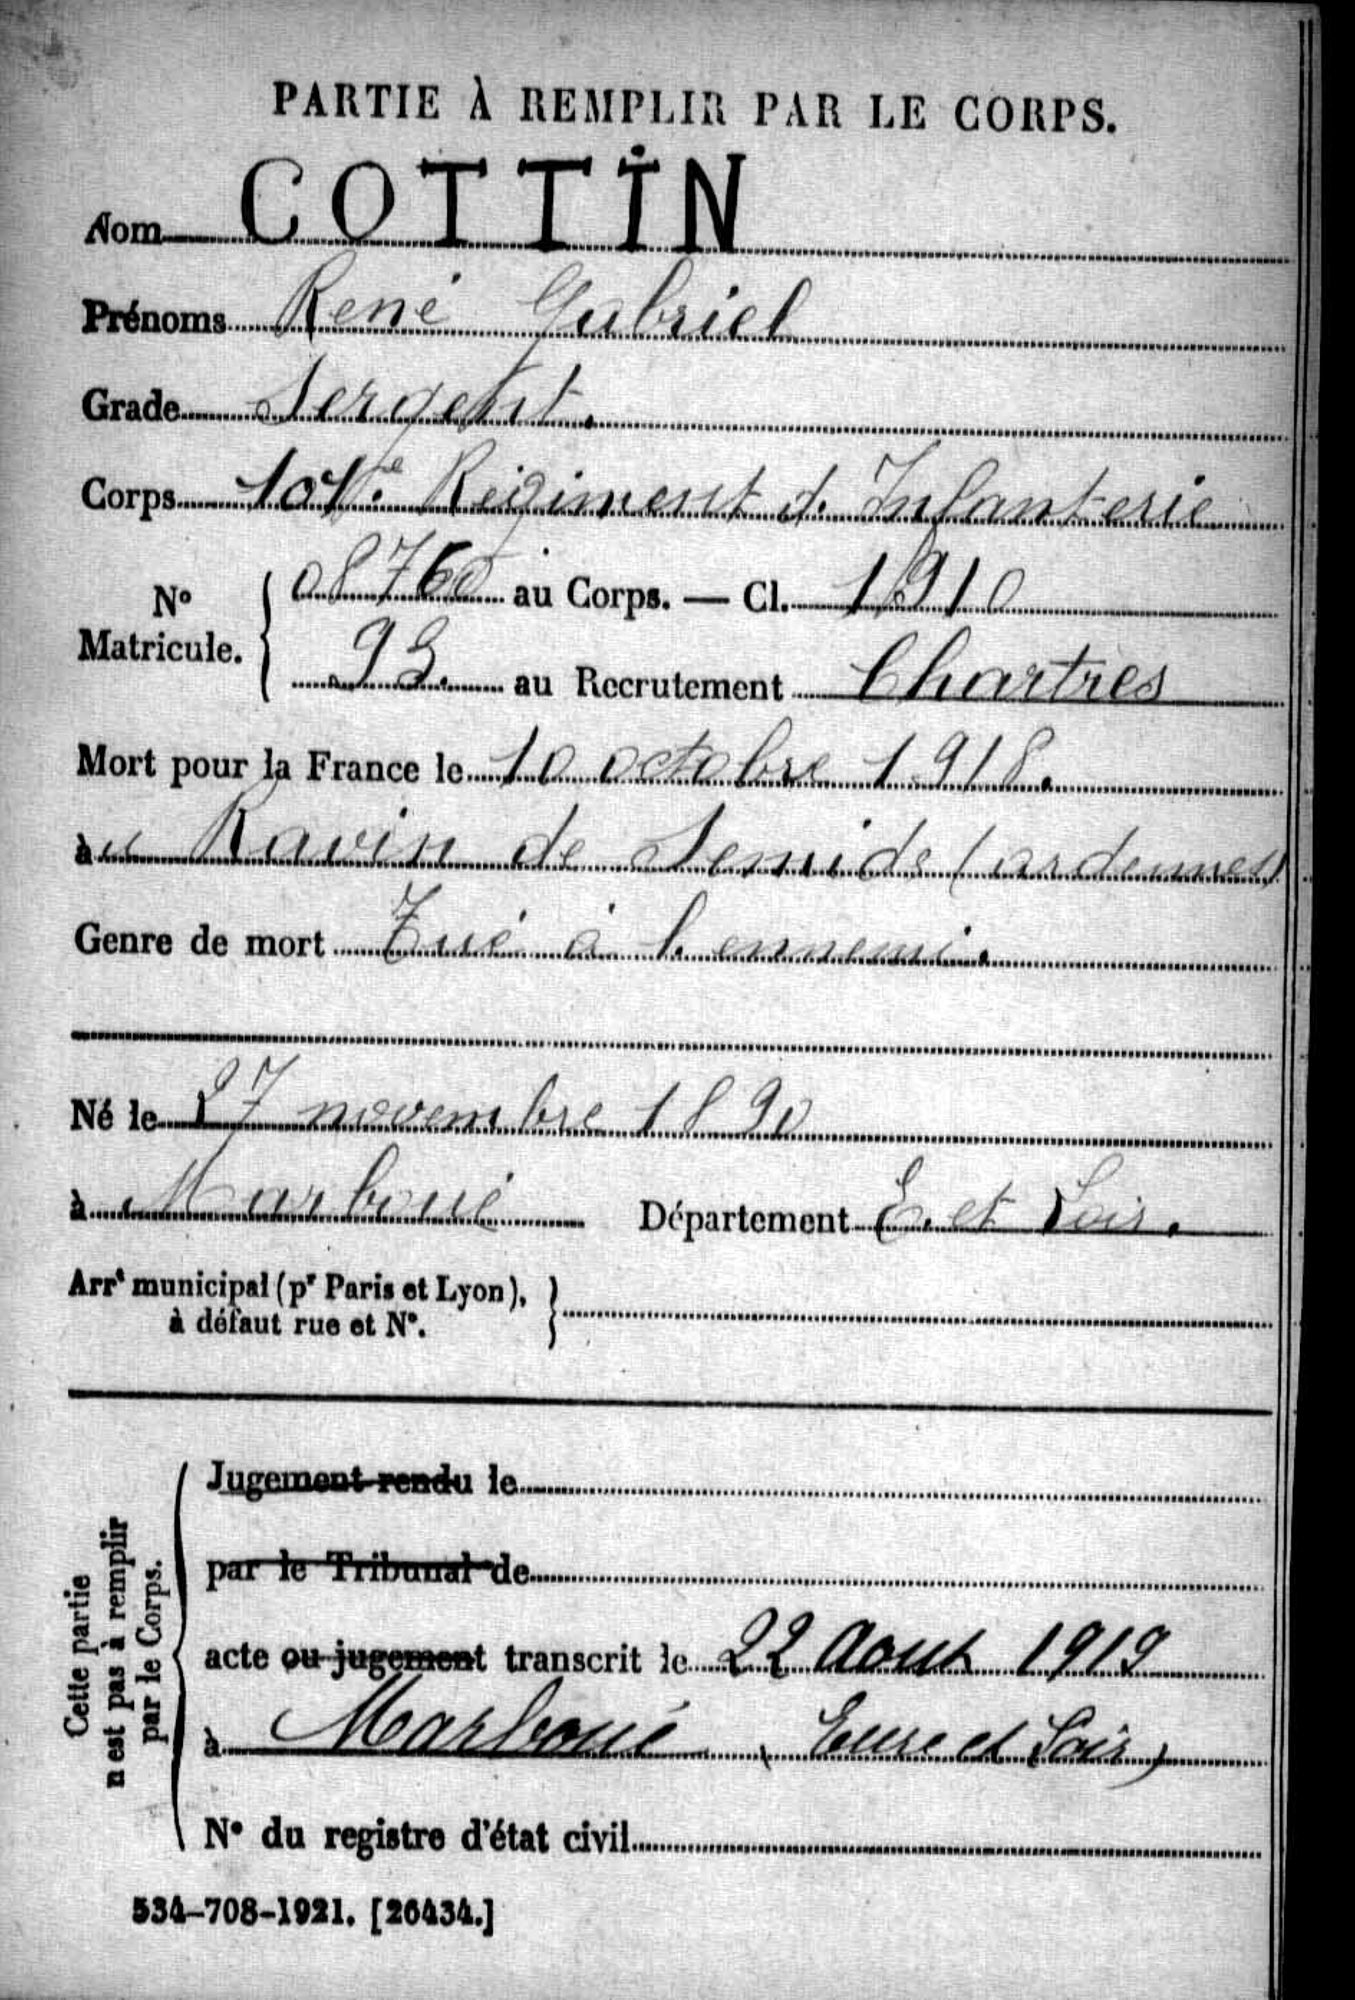 PARTIE À REMPLIR PAR LE CORPS.
Nom COTTIN
Prénoms René Gabriel
Grade Sergent.
Corps 101e Régiment d. Infanterie
N° Matricule. 08760 au Corps. — Cl. 1910
93. au Recrutement Chartres
Mort pour la France le 10 octobre 1918.
au Ravin de Semide (ardennes)
Genre de mort Tué à l. ennemi.
Né le 27 novembre 1890
à Marboué Département E. et Loir.
Arrt municipal (pr Paris et Lyon),
à défaut rue et N°.
Cette partie
n'est pas à remplir
par le Corps.
Jugement rendu le
par le Tribunal de
acte ou jugement transcrit le 22 Aout 1919
à Marboué (Eure et Loir)
N° du registre d'état civil
534-708-1921. [26434.]